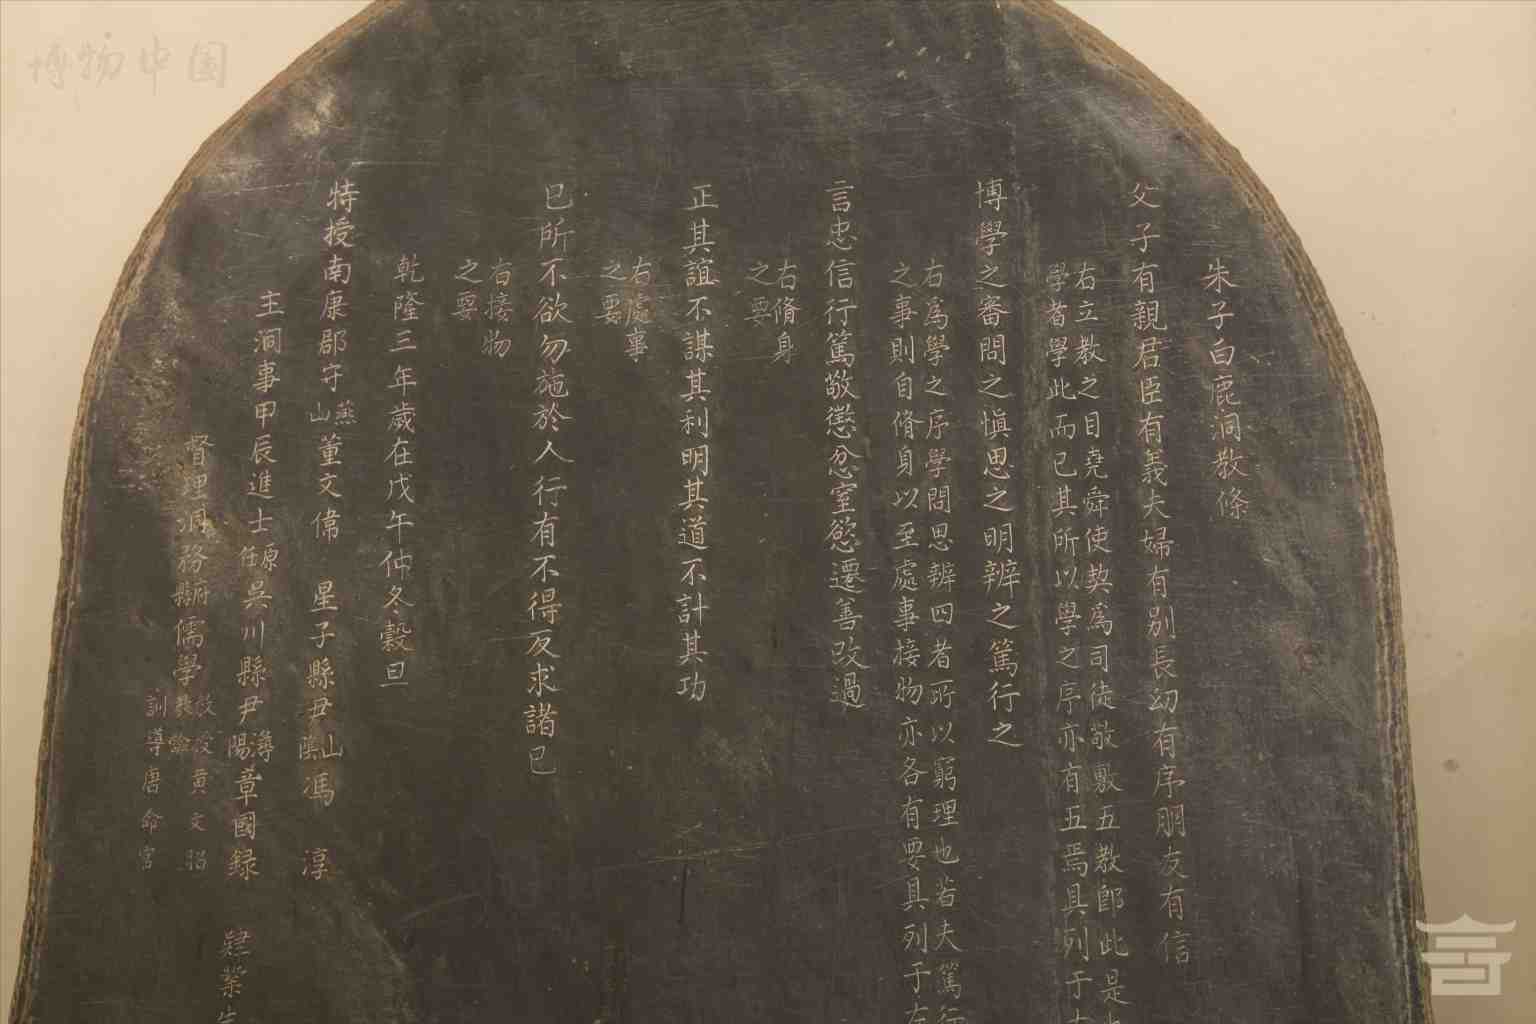 朱子白鹿洞教條
父子有親君臣有義夫婦有别長幼有序朋友有信
右立教之目堯舜使契為司徒敬敷五教即此是
學者學此而已其所以學之序亦有五焉具列于
博學之審問之慎思之明辨之篤行之
右為學之序學問思辨四者所以窮理也若夫篤行
之事則自脩身以至處事接物亦各有要具列于左
言忠信行篤敬懲忿窒慾遷善改過
右脩身
之要
正其誼不謀其利明其道不計其功
右處事
之要
已所不欲勿施於人行有不得反求諸已
右接物
之要
乾隆三年歲在戊午仲冬穀旦
特授南康郡守燕山董文偉 星子縣尹山陰馮 淳
主洞事甲辰進士原任吳川縣尹潯陽章國録 肄業生
督理洞務府縣儒學教授黄文
訓導唐命官
博物中国